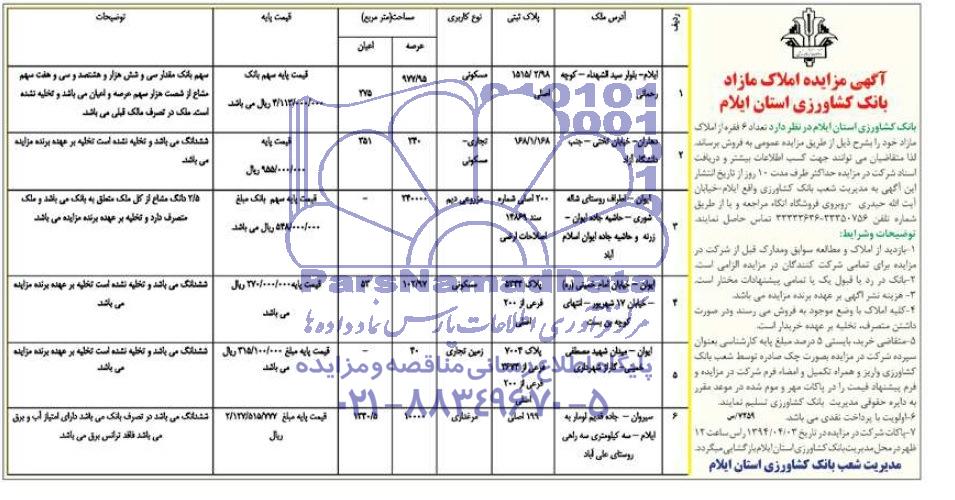 آگهی مزایده املاک مازاد
بانک کشاورزی استان ایلام
بانک کشاورزی استان ایلام در نظر دارد تعداد ۶ فقره از املاک
مازاد خود را بشرح ذیل از طریق مزایده عمومی به فروش برساند.
لذا متقاضیان می توانند جهت کسب اطلاعات بیشتر و دریافت
اسناد شرکت در مزایده حداکثر ظرف مدت ۱۰ روز از تاریخ انتشار
این آگهی به مدیریت شعب بانک کشاورزی واقع ایلام-خیابان
آیت الله حیدری -روبروی فروشگاه اتکاء مراجعه و یا از طریق
شماره تلفن ۳۳۳۵۰۷۵۶-۳۳۳۳۳۶۳۶ تماس حاصل نمایند.
توضیحات وشرایط:
۱-بازدید از املاک و مطالعه سوابق ومدارک قبل از شرکت در
مزایده برای تمامی شرکت کنندگان در مزایده الزامی است.
۲-بانک در رد یا قبول یک یا تمامی پیشنهادات مختار است.
۳- هزینه نشر آگهی بر عهده برنده مزایده می باشد.
۴-کلیه املاک با وضع موجود به فروش می رسند ودر صورت
داشتن متصرف، تخلیه بر عهده خریدار است.
۵-متقاضی خرید، بایستی ۵ درصد مبلغ پایه کارشناسی بعنوان
سپرده شرکت در مزایده بصورت چک صادره توسط شعب بانک
کشاورزی واریز و همراه تکمیل و امضاء فرم شرکت در مزایده و
فرم پیشنهاد قیمت را در پاکات مهر و موم شده در موعد مقرر
به دایره حقوقی مدیریت بانک کشاورزی تسلیم نمایند.
۶-اولویت با پرداخت نقدی می باشد. ۷۲۵۹/س
۷-پاکات شرکت در مزایده در تاریخ ۱۳۹۴/۰۴/۰۳ راس ساعت ۱۲
ظهر در محل مدیریت بانک کشاورزی استان ایلام بازگشایی میگردد.
مدیریت شعب بانک کشاورزی استان ایلام
ردیف آدرس ملک پلاک ثبتی نوع کاربری مساحت(متر مربع) قیمت پایه توضیحات
عرصه اعیان
۱ ایلام- بلوار سید الشهداء - کوچه رحمانی ۱۵۱۵/۲/۹۸ اصلی مسکونی ۹۷۷/۹۵ ۲۷۵ قیمت پایه سهم بانک ۴/۱۱۳/۰۰۰/۰۰۰ ریال می باشد. سهم بانک مقدار سی و شش هزار و هشتصد و سی و هفت سهم مشاع از شصت هزار سهم عرصه و اعیان می باشد و تخلیه نشده است. ملک در تصرف مالک قبلی می باشد
۲ دهلران- خیابان تختی - جنب دانشگاه آزاد ۱۶۸/۱/۱۶۸ تجاری- مسکونی ۲۴۰ ۲۵۱ قیمت پایه ۹۵۵/۰۰۰/۰۰۰ ریال ششدانگ می باشد و تخلیه نشده است تخلیه بر عهده برنده مزایده می باشد.
۳ ایوان - اطراف روستای شاله شوری - حاشیه جاده ایوان - زرنه و حاشیه جاده ایوان اسلام آباد ۲۰۰ اصلی شماره سند ۱۲۸۶۹ اصلاحات ارضی مزروعی دیم ۲۴۰۰۰۰ - قیمت پایه سهم بانک مبلغ ۵۴۸/۰۰۰/۰۰۰ ریال می باشد. ۲/۵ دانگ مشاع از کل ملک متعلق به بانک می باشد و ملک متصرف دارد و تخلیه بر عهده برنده مزایده می باشد
۴ ایوان - خیابان امام خمینی (ره) - خیابان ۱۷ شهریور - انتهای کوچه بن بست پلاک ۵۳۳۲ فرعی از ۲۰۰ اصلی مسکونی ۱۰۲/۹۷ ۵۳ قیمت پایه ۲۷۰/۰۰۰/۰۰۰ ریال می باشد ششدانگ می باشد و تخلیه نشده است تخلیه بر عهده برنده مزایده می باشد
۵ ایوان - میدان شهید مصطفی خمینی - گاراژ شهرداری پلاک ۷۰۰۴ فرعی از ۳۶۷۳ فرعی از ۲۰۰ اصلی زمین تجاری ۴۰ - قیمت پایه مبلغ ۳۱۵/۱۰۰/۰۰۰ ریال می باشد ششدانگ می باشد و تخلیه نشده است تخلیه بر عهده برنده مزایده می باشد.
۶ سیروان - جاده قدیم لومار به ایلام - سه کیلومتری سه راهی روستای علی آباد ۱۹۹ اصلی مرغداری ۱۰۰۰۰ ۱۳۳۰/۵ قیمت پایه مبلغ ۲/۱۲۷/۵۱۵/۷۷۷ ریال ششدانگ می باشد در تصرف بانک می باشد دارای امتیاز آب و برق می باشد فاقد ترانس برق می باشد.
ParsNamadData
مرکز فرآوری اطلاعات پارس نماد داده ها
پایگاه اطلاع رسانی مناقصه و مزایده
۰۲۱-۸۸۳۴۹۶۷۰-۵